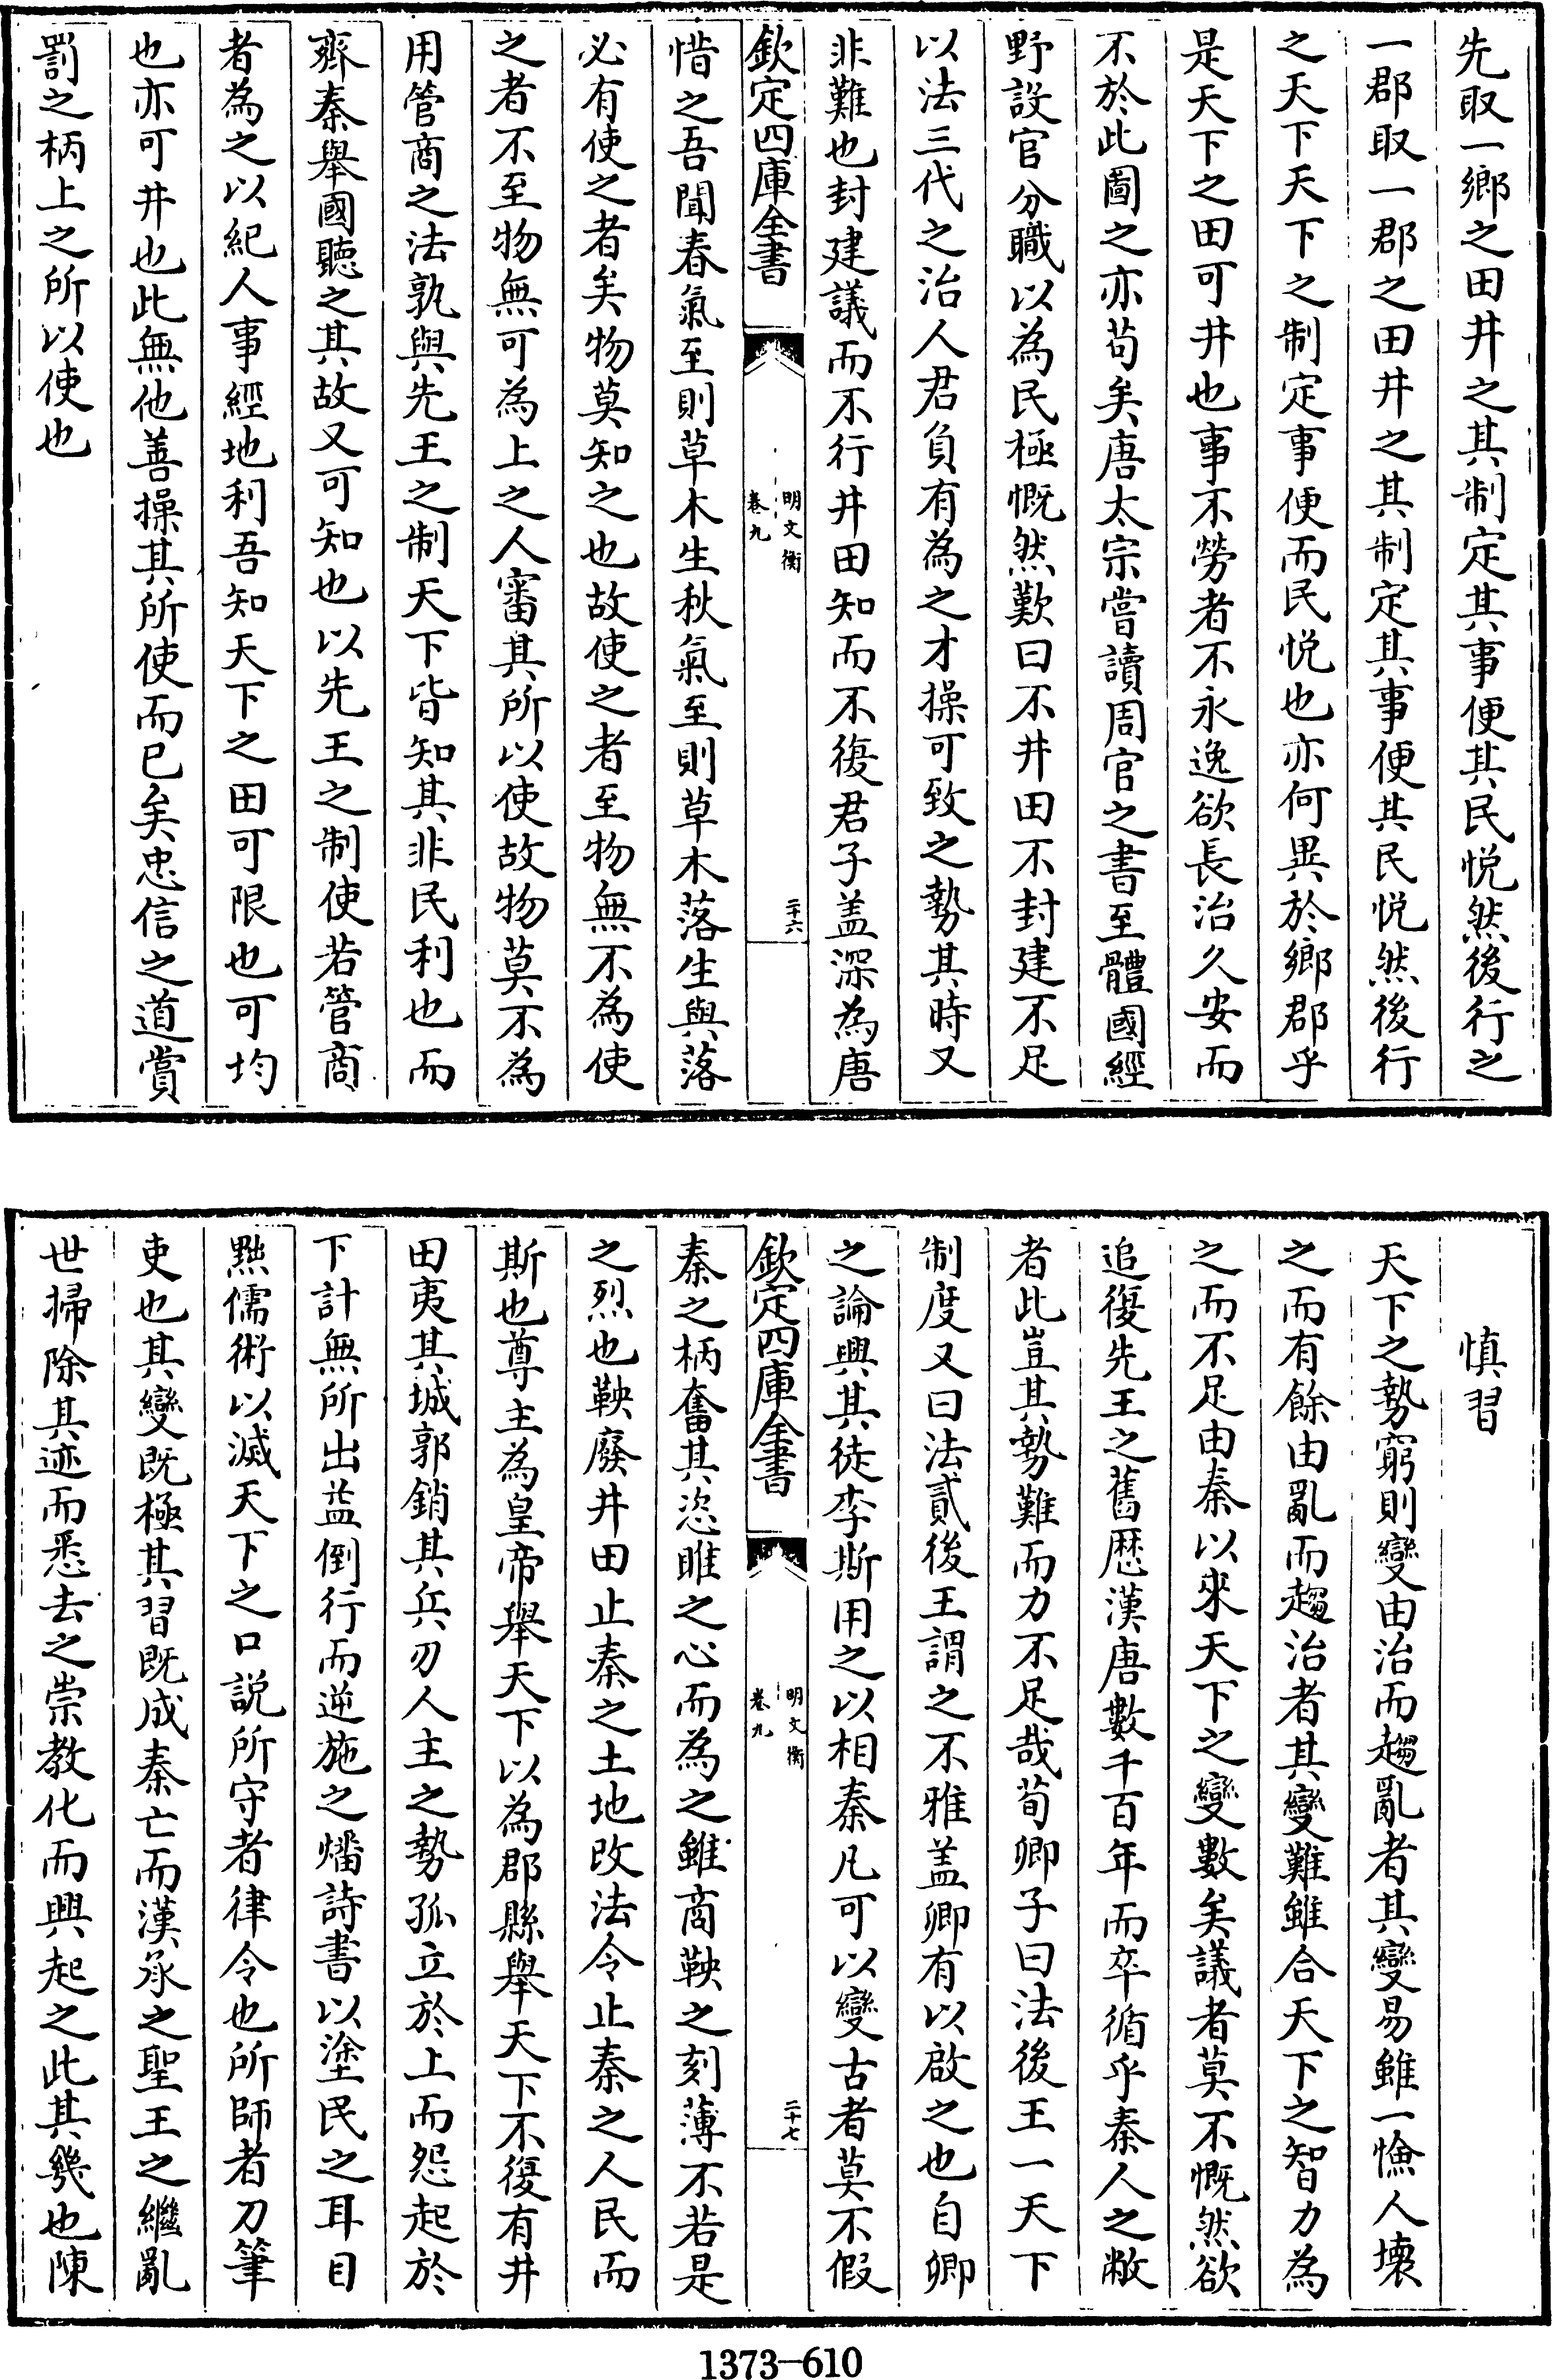 先取一鄉之田井之其制定其事便其民悅然後行之
一郡取一郡之田井之其制定其事便其民悅然後行
之天下天下之制定事便而民悅也亦何異於鄉郡乎
是天下之田可井也事不勞者不永逸欲長治久安而
不於此圖之亦苟矣唐太宗嘗讀周官之書至體國經
野設官分職以為民極慨然歎曰不井田不封建不足
以法三代之治人君負有為之才操可致之勢其時又
非難也封建議而不行井田知而不復君子盖深為唐
欽定四庫全書
明文衡
卷九
二十六
惜之吾聞春氣至則草木生秋氣至則草木落生與落
必有使之者矣物莫知之也故使之者至物無不為使
之者不至物無可為上之人審其所以使故物莫不為
用管商之法孰與先王之制天下皆知其非民利也而
齊秦舉國聽之其故又可知也以先王之制使若管商
者為之以紀人事經地利吾知天下之田可限也可均
也亦可井也此無他善操其所使而已矣忠信之道賞
罰之柄上之所以使也
慎習
天下之勢窮則變由治而趨亂者其變易雖一憸人壞
之而有餘由亂而趨治者其變難雖合天下之智力為
之而不足由秦以來天下之變數矣議者莫不慨然欲
追復先王之舊歴漢唐數千百年而卒循乎秦人之敝
者此豈其勢難而力不足哉荀卿子曰法後王一天下
制度又曰法貳後王謂之不雅盖卿有以啟之也自卿
之論興其徒李斯用之以相秦凡可以變古者莫不假
欽定四庫全書
明文衡
卷九
二十七
秦之柄奮其恣睢之心而為之雖商鞅之刻薄不若是
之烈也鞅廢井田止秦之土地改法令止秦之人民而
斯也尊主為皇帝舉天下以為郡縣舉天下不復有井
田夷其城郭銷其兵刃人主之勢孤立於上而怨起於
下計無所出益倒行而逆施之燔詩書以塗民之耳目
黜儒術以滅天下之口說所守者律令也所師者刀筆
吏也其變既極其習既成秦亡而漢承之聖王之繼亂
世掃除其迹而悉去之崇教化而興起之此其幾也陳
1373-610